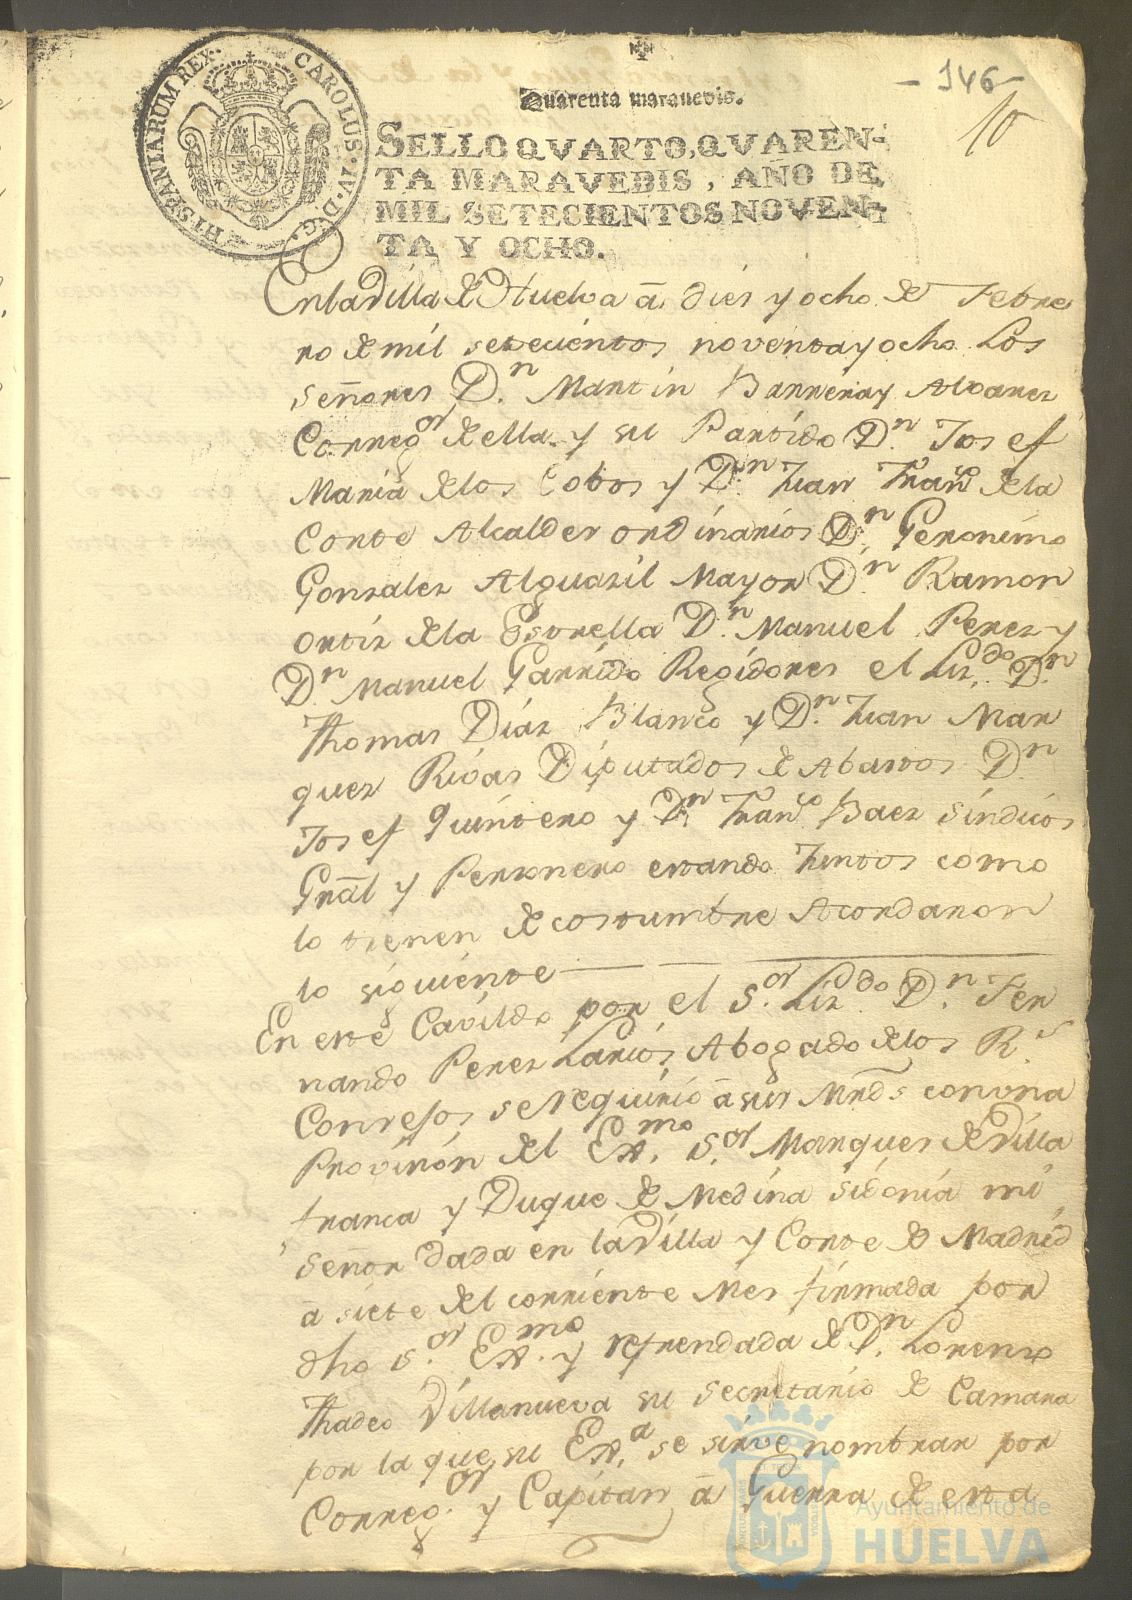 - 146 -
10
Quarenta maravedis.
HISPANIARUM REX. CAROLUS·IV·D·G·
SELLO QVARTO, QVAREN-
TA MARAVEDIS, AÑO DE
MIL SETECIENTOS NOVEN-
TA Y OCHO.
En la Villa de Huelva â dies y ocho de Febre
ro de mil setecientos noventa y ocho. Los
señores Dn. Martin Barrera y Alvarez
Corregor de ella y su Partido Dn. Josef
Maria de los Cobos y Dn. Juan Franco de la
Corte Alcaldes ordinarios Dn. Geronimo
Gonzales Alguasil Mayor Dn. Ramon
ortiz de la Estrella Dn. Manuel Perez y
Dn. Manuel Garrido Regidores el Lizdo. Dn.
Thomas Diaz Blanco y Dn. Juan Mar
quez Rivas Diputados de Abastos Dn.
Josef Quintero y Dn. Franco Baez Sindicos
Gral y Personero estando Juntos como
lo tienen de costumbre Acordaron
lo siguiente
En este Cavildo por el Sor. Lizdo Dn. Fer
nando Perez Larios, Abogado de los Rs.
Consejos se requirió â sus Mrds con una
Provision del Exmo. Sor. Marques de Villa
franca y Duque de Medina sidonia mi
señor dada en la Villa y Corte de Madrid
â siete del corriente Mes firmada por
dho Sor. Exmo. y refrendada de Dn. Lorenzo
Thadeo Villanueva su secretario de Camara
por la que su Exa. se sirve nombrar por
Corregor. y Capitan â Guerra de esta
Ayuntamiento de
HUELVA